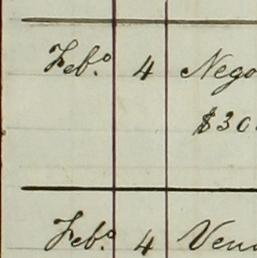 Feb.o 4 Nego
$30
Feb.o 4 Ven